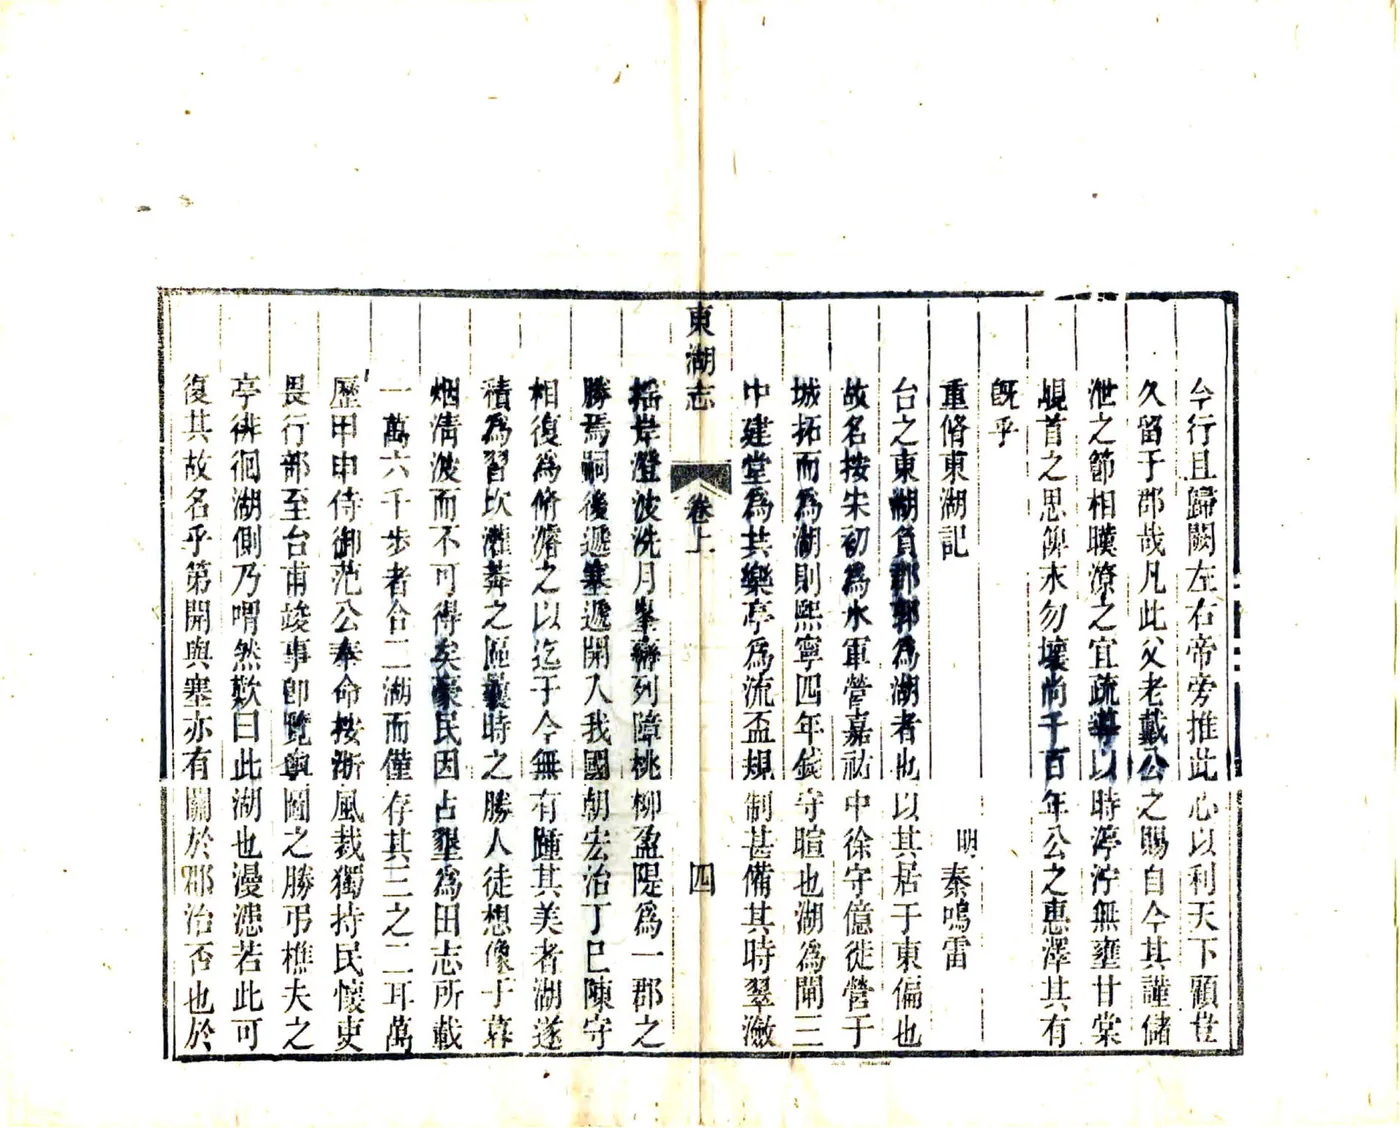 今行且歸闕左右帝旁推此心以利天下顧豈
久留于郡哉凡此父老戴公之賜自今其謹儲
泄之節相暵潦之宜疏導以時渟泞無壅甘棠
峴首之思俾木勿壞尚千百年公之惠澤其有
旣乎
重脩東湖記
明秦鳴雷
台之東湖負郡郭爲湖者也以其居于東偏也
故名按宋初爲水軍營嘉祐中徐守億徙營于
城拓而爲湖則熙寧四年錢守暄也湖爲閘三
中建堂爲共樂亭爲流盃規制甚備其時翠瀲
東湖志
卷上
四
搖岸澄波洗月峯巒列障桃柳盈隄爲一郡之
勝焉嗣後遞塞遞開入我國朝宏治丁巳陳守
相復爲脩濬之以迄于今無有踵其美者湖遂
積爲習坎灌莽之區曩時之勝人徒想像于暮
烟淸波而不可得矣豪民因占墾爲田志所載
一萬六千步者合二湖而僅存其三之二耳萬
歷甲申侍御范公奉命按浙風裁獨持民懷吏
畏行部至台甫竣事卽覽輿圖之勝弔樵夫之
亭徘徊湖側乃喟然歎曰此湖也漫漶若此可
復其故名乎第開與塞亦有關於郡治否也於